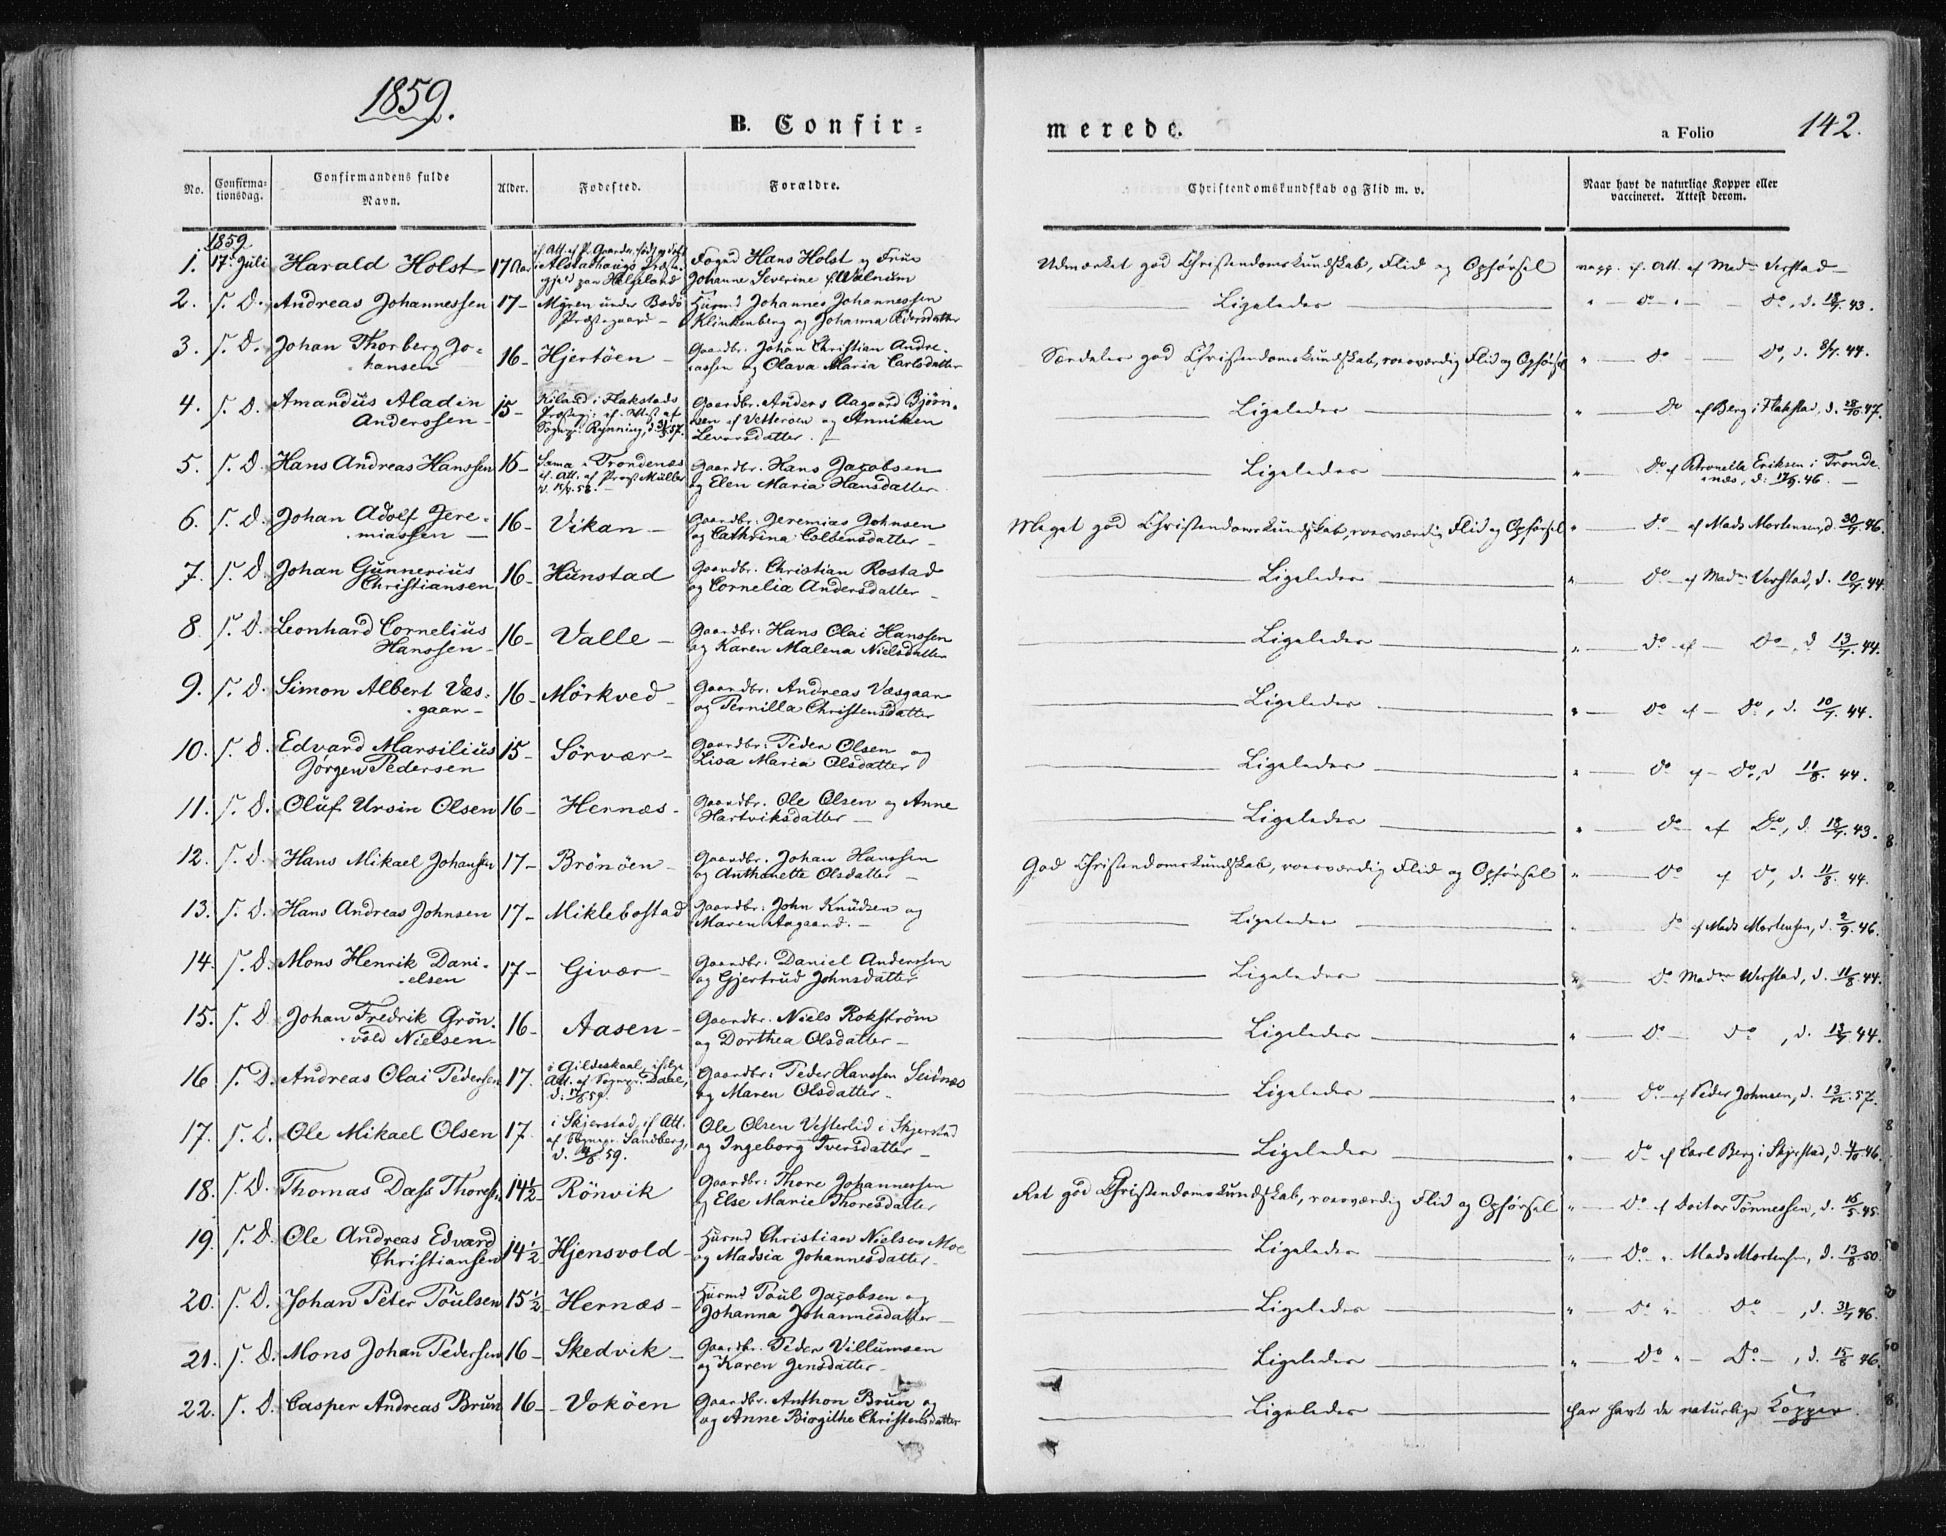 1859.
B. Confir=
merede.
a Folio 142.
No.
Confirma-
tionsdag.
Confirmandens fulde
Navn.
Alder.
Fødested.
Forældre.
Christendomskundskab og Flid m. v.
Naar havt de naturlige Kopper eller
vaccineret. Attest derom.
1859
1. 17. Juli Harald Holst 17 Foged Hans Holst og Frue
Johanne Severine f. Walnum
Udmærket god Christendomskundskab, Flid og Opførsel
2. S. D. Andreas Johannessen 17 Myren under Bodø
Præstegaard Huusmd Johannes Johannessen
Klinkenberg og Johanna
Ligeledes Do, d. 18/7. 43.
3. S. D. Johan Thorberg Jo-
hansen 16 Hjertøen Gaardbr. Johan Christian Andre-
assen og Olava Maria Carlsdatter
Særdeles god Christendomskundskab, roesværdig Flid og Opførsel Do Do, d. 44.
4. S. D. Amandus Aladin
Anderssen 15 i Flakstads
Gaardbr. Anders Aagaard Bjørn-
sen af Vetterøen og Anniken
Levorsdatter.
Ligeledes Do af Berg i Flakstad, d. 28/10 47.
5. S. D. Hans Andreas Hanssen 16 Sama i Trondenæs
if. Att. af Prost Müller
Gaardbr. Hans Jacobsen
og Elen Maria Hansdatter
Ligeledes Do af Petronelle Eriksen i Tronde-
næs, d. 46.
6. S. D. Johan Adolf Jere-
miassen 16 Vikan Gaardbr. Jeremias Johnsen
og Cathrina Colbensdatter
Meget god Christendomskundskab, roesværdig Flid og Opførsel Do af Mads Mortensen, d. 30/7. 46.
7. S. D. Johan Gunnerius
Christiansen 16 Hunstad Gaardbr. Christian Rostad
og Cornelia Andersdatter
Ligeledes Do af Madm Verstad, d. 10/7. 44.
8. S. D. Leonhard Cornelius
Hanssen 16 Valle Gaardbr: Hans Olai Hanssen
og Karen Malena Nielsdatter
Ligeledes Do af Do, d 13/7. 44.
9. S. D. Simon Albert Væs-
gaar 16 Mörkved Gaardbr: Andreas Væsgaar
og Pernilla Christensdatter
Ligeledes Do af Do, d. 10/7. 44.
10. S. D. Edvard Marsilius
Jørgen Pedersen 15 Sörvær Gaardbr: Peder Olsen og
Lisa Maria Olsdatter
Ligeledes Do af Do, d 11/8. 44.
11. S. D. Oluf Ursin Olsen 16 Hernæs Gaardbr. Ole Olsen og Anne
Hartviksdatter
Ligeledes Do af Do, d. 18/7. 43.
12. S. D. Hans Mikael Johansen 17 Brönöen Gaardbr. Johan Hanssen
og Anthonette Olsdatter
God Christendomskundskab, roesværdig Flid og Opførsel Do af Do, d. 11/8. 44.
13. S. D. Hans Andreas Johnsen 17 Miklebostad Gaardbr: John Knudsen og
Maren Aagaard.
Ligeledes Do af Mads Mortensen, d. 2/9. 46.
14. S. D. Mons Henrik Dani-
elsen 17 Givær Gaardbr: Daniel Anderssen
og Gjertrud Johnsdatter
Ligeledes Do Madm Verstad, d. 11/8. 44.
15. S. D. Johan Fredrik Grön-
vold Nielsen 16 Aasen Gaardbr. Niels Rokström
og Dorthea Olsdatter
Ligeledes Do Do, d. 13/7. 44.
16 S. D. Andreas Olai Pedersen 17. i Gildeskaal, ifølge
Att. af Sognepr. Dahl,
Gaardbr: Peder Hanssen Seidnæs
og Maren Olsdatter
Ligeledes Do af Peder Johnsen, d. 13/12. 57.
17. S. D. Ole Mikael Olsen 17. i Skjerstad, if. Att.
af Sognepr. Sandberg,
d. 59. Ole Olsen Vesterlid i Skjerstad
og Ingeborg Iversdatter
Ligeledes Do af Carl Berg i Skjerstad, d. 46.
18. S. D. Thomas Dass Thoresen 14 1/2 Rönvik Gaardbr: Thore Johannessen
og Else Marie Thoresdatter
Ret god Christendomskundskab, roesværdig Flid og Opførsel Do af Doctor Tönnessen, d. 16/5. 45.
19. S. D. Ole Andreas Edvard
Christiansen 14 1/2 Hjensvold Huusmd Christian Nielsen Moe
og Madsia Johannesdatter
Ligeledes Do " Mads Mortensen, d. 13/8. 50.
20. S. D. Johan Peter Poulsen 15 1/2 Hernæs Huusmd Poul Jacobsen og
Johanna Johannesdatter
Ligeledes Do " Do, d. 31/7 46.
21. S. D. Mons Johan Pedersen 16 Skedvik Gaardbr. Peder Villumsen
og Karen Jensdatter
Ligeledes Do " Do, d. 15/8 46.
22. S. D. Casper Andreas Brun 16 Voköen Gaardbr. Anthon Brun og
og Anne Birgithe Christensdatter
Ligeledes har havt de naturlige Kopper.